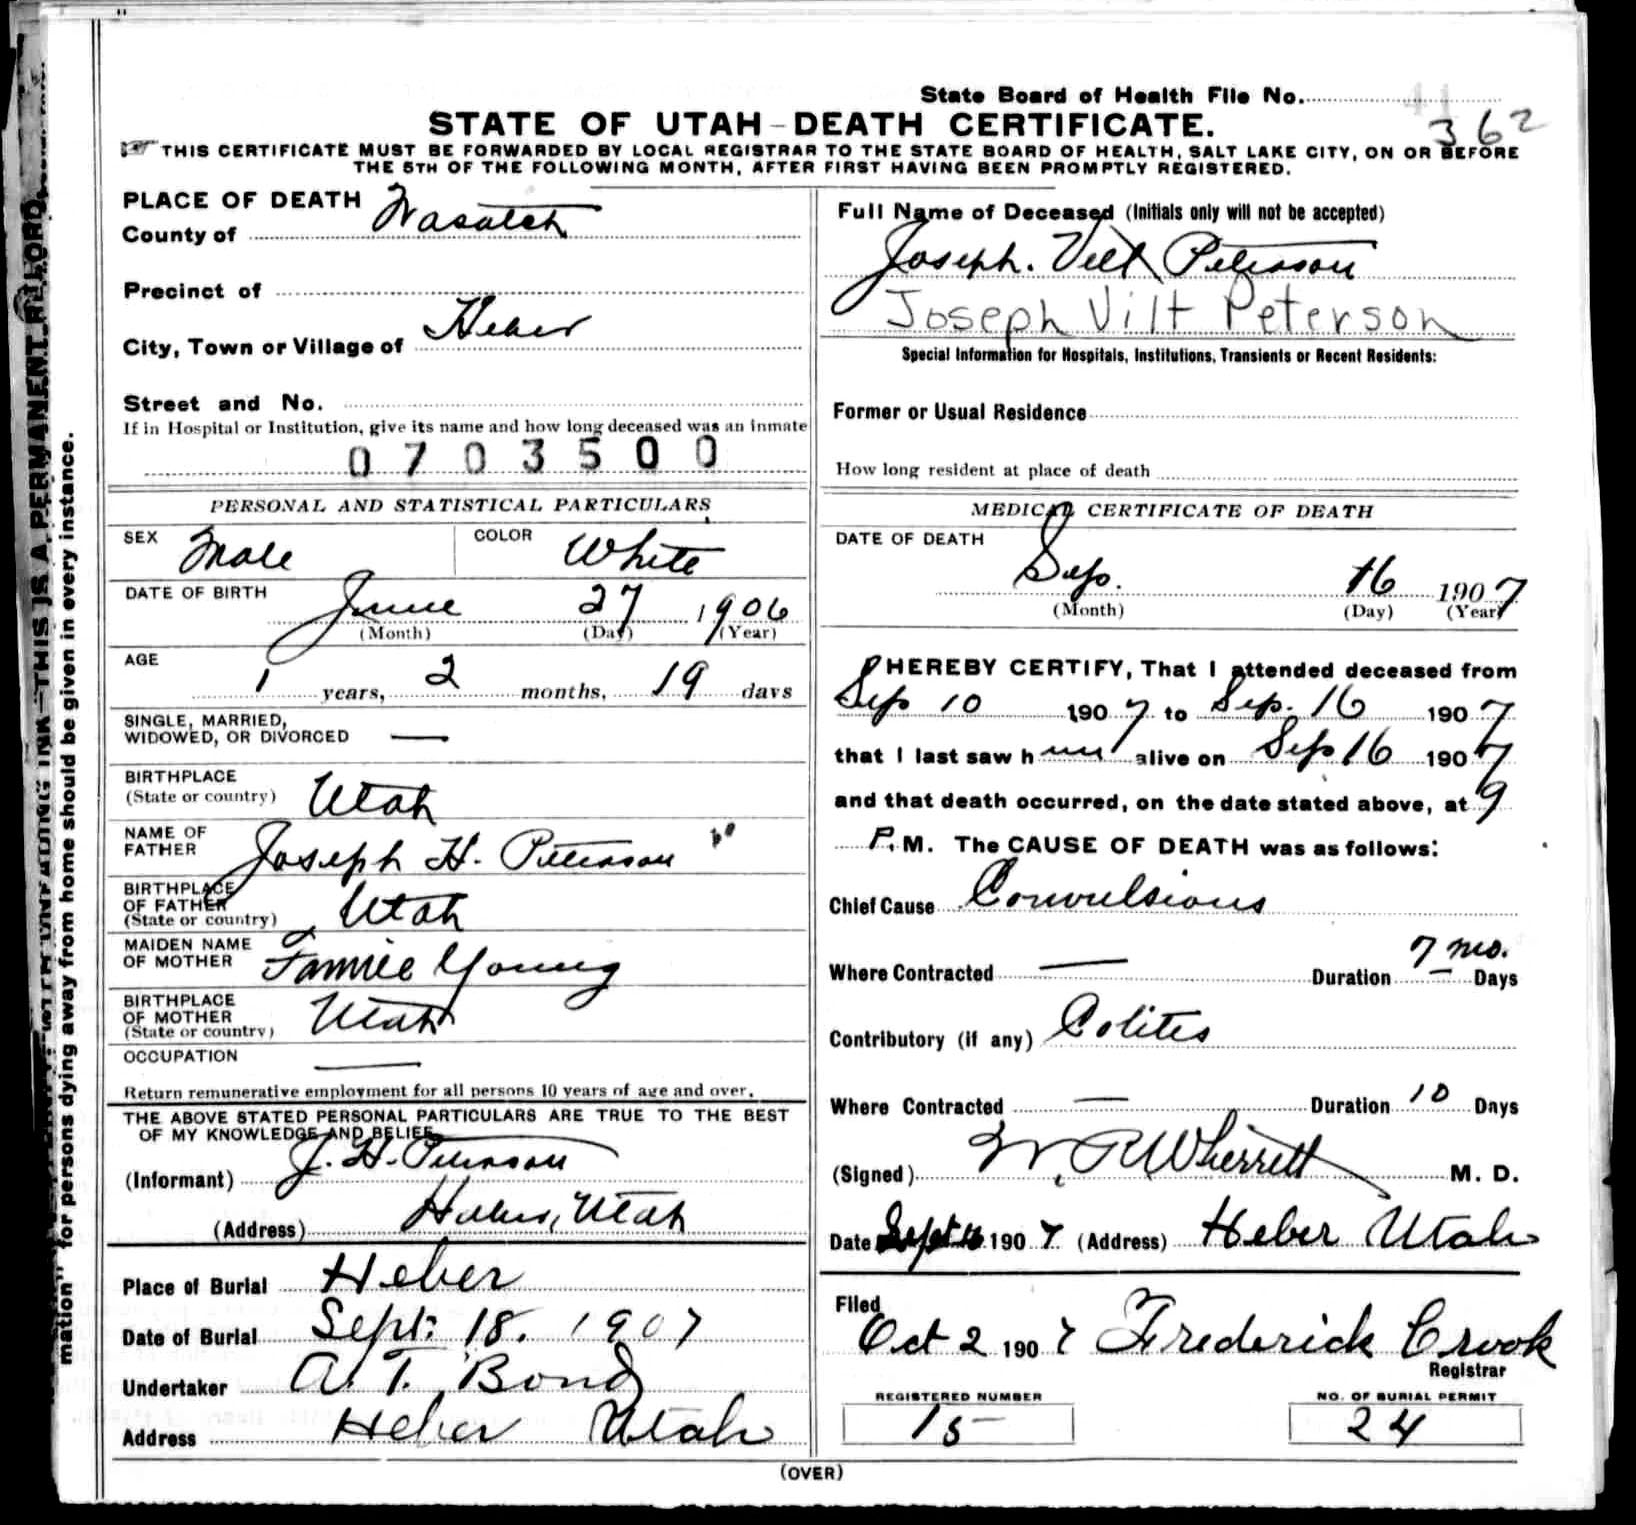 State Board of Health File No. 41
362
STATE OF UTAH–DEATH CERTIFICATE.
THIS CERTIFICATE MUST BE FORWARDED BY LOCAL REGISTRAR TO THE STATE BOARD OF HEALTH, SALT LAKE CITY, ON OR BEFORE
THE 5TH OF THE FOLLOWING MONTH, AFTER FIRST HAVING BEEN PROMPTLY REGISTERED.
THIS IS A PERMANENT RECORD.
mation" for persons dying away from home should be given in every instance.
PLACE OF DEATH
County of Wasatch
Precinct of
City, Town or Village of Heber
Street and No.
If in Hospital or Institution, give its name and how long deceased was an inmate
0703500
PERSONAL AND STATISTICAL PARTICULARS
SEX Male COLOR White
DATE OF BIRTH June 27 1906
(Month) (Day) (Year)
AGE
1 years, 2 months, 19 days
SINGLE, MARRIED,
WIDOWED, OR DIVORCED —
BIRTHPLACE
(State or country) Utah
NAME OF
FATHER Joseph H. Peterson
BIRTHPLACE
OF FATHER
(State or country) Utah
MAIDEN NAME
OF MOTHER Fannie Young
BIRTHPLACE
OF MOTHER
(State or country) Utah
OCCUPATION —
Return remunerative employment for all persons 10 years of age and over.
THE ABOVE STATED PERSONAL PARTICULARS ARE TRUE TO THE BEST
OF MY KNOWLEDGE AND BELIEF
(Informant) J. H. Peterson
(Address) Heber, Utah
Place of Burial Heber
Date of Burial Sept. 18. 1907
Undertaker A. T. Bond
Address Heber Utah
Full Name of Deceased (Initials only will not be accepted)
Joseph. Vilt Peterson
Joseph Vilt Peterson
Special Information for Hospitals, Institutions, Transients or Recent Residents:
Former or Usual Residence
How long resident at place of death
MEDICAL CERTIFICATE OF DEATH
DATE OF DEATH
Sep. 16 1907
(Month) (Day) (Year)
I HEREBY CERTIFY, That I attended deceased from
Sep 10 1907 to Sep. 16 1907
that I last saw him alive on Sep 16 1907
and that death occurred, on the date stated above, at 9
P.M. The CAUSE OF DEATH was as follows:
Chief Cause Convulsions
Where Contracted — Duration 7 mo. — Days
Contributory (if any) Colites
Where Contracted — Duration 10 Days
(Signed) W. R Wherrett M. D.
Date Sept 16 1907 (Address) Heber Utah
Filed
Oct 2 1907 Frederick Crook
Registrar
REGISTERED NUMBER NO. OF BURIAL PERMIT
15 24
(OVER)